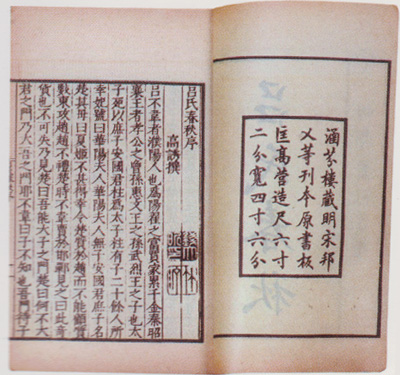 涵芬樓藏明宋邦
乂等刊本原書板
匡高營造尺六寸
二分寬四寸六分
呂氏春秋序
高誘撰
呂不韋者濮陽人也爲陽翟之富賈家累千金秦昭
襄王者孝公之曾孫惠文王之孫武烈王之子也太
子死以庶子安國君柱爲太子柱有子二十餘人所
幸妃號曰華陽夫人華陽夫人無子安國君庶子名
楚其母曰夏姬不甚得幸令楚質於趙而不能顧質
數東攻趙趙不禮楚時不韋賈於邯鄲見之曰此奇
貨也不可失乃見楚曰吾能大子之門楚曰何不大
君之門乃大吾之門邪不韋曰子不知也吾門待子